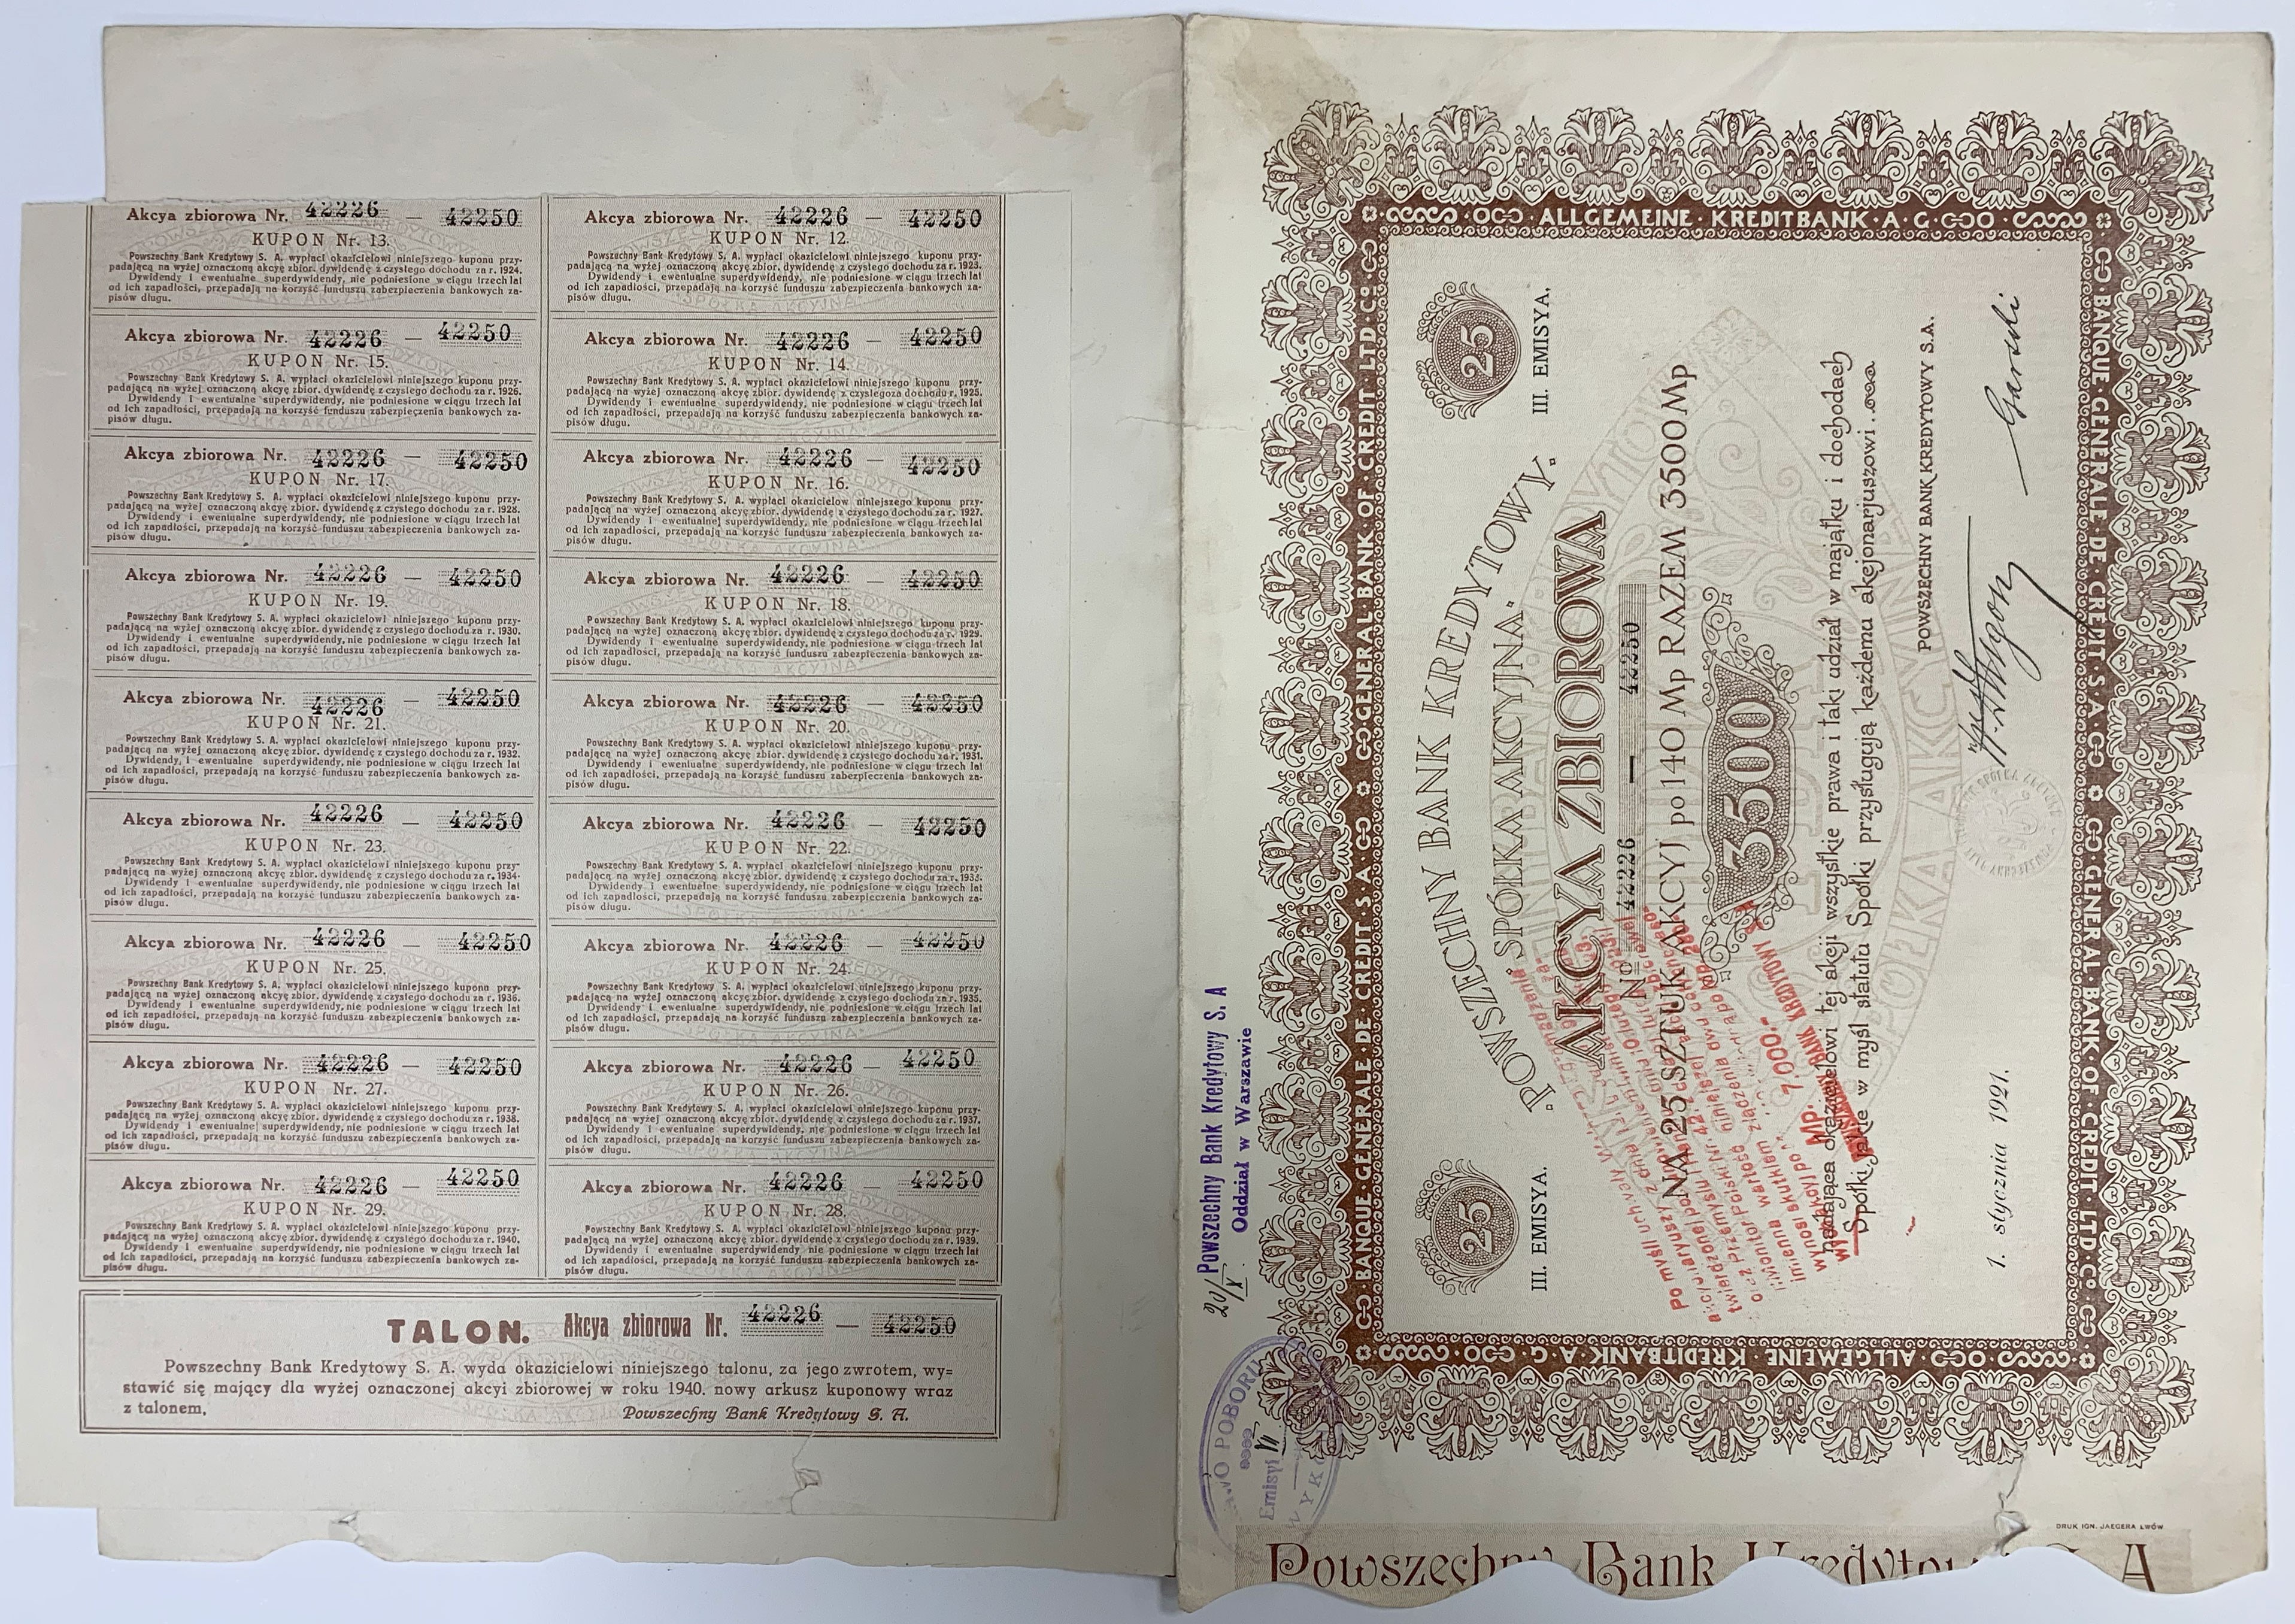 Akcya zbiorowa Nr. 42226 — 42250
KUPON Nr. 13.
Powszechny Bank Kredytowy S. A. wypłaci okazicielowi niniejszego kuponu przy-
padającą na wyżej oznaczoną akcyę zbior. dywidendę z czystego dochodu za r. 1924.
Dywidendy i ewentualne superdywidendy, nie podniesione w ciągu trzech lat
od ich zapadłości, przepadają na korzyść funduszu zabezpieczenia bankowych za-
pisów długu.
Akcya zbiorowa Nr. 42226 — 42250
KUPON Nr. 12.
Powszechny Bank Kredytowy S. A. wypłaci okazicielowi niniejszego kuponu przy-
padającą na wyżej oznaczoną akcyę zbior. dywidendę z czystego dochodu za r. 1923.
Dywidendy i ewentualne superdywidendy, nie podniesione w ciągu trzech lat
od ich zapadłości, przepadają na korzyść funduszu zabezpieczenia bankowych za-
pisów długu.
Akcya zbiorowa Nr. 42226 — 42250
KUPON Nr. 15.
Powszechny Bank Kredytowy S. A. wypłaci okazicielowi niniejszego kuponu przy-
padającą na wyżej oznaczoną akcyę zbior. dywidendę z czystego dochodu za r. 1926.
Dywidendy i ewentualne superdywidendy, nie podniesione w ciągu trzech lat
od ich zapadłości, przepadają na korzyść funduszu zabezpieczenia bankowych za-
pisów długu.
Akcya zbiorowa Nr. 42226 — 42250
KUPON Nr. 14.
Powszechny Bank Kredytowy S. A. wypłaci okazicielowi niniejszego kuponu przy-
padającą na wyżej oznaczoną akcyę zbior. dywidendę z czystegoza dochodu r. 1925.
Dywidendy i ewentualne superdywidendy, nie podniesione w ciągu trzech lat
od ich zapadłości, przepadają na korzyść funduszu zabezpieczenia bankowych za-
pisów długu.
Akcya zbiorowa Nr. 42226 — 42250
KUPON Nr. 17.
Powszechny Bank Kredytowy S. A. wypłaci okazicielowi niniejszego kuponu przy-
padającą na wyżej oznaczoną akcyę zbior. dywidendę z czystego dochodu za r. 1928.
Dywidendy i ewentualne superdywidendy, nie podniesione w ciągu trzech lat
od ich zapadłości, przepadają na korzyść funduszu zabezpieczenia bankowych za-
pisów długu.
Akcya zbiorowa Nr. 42226 — 42250
KUPON Nr. 16.
Powszechny Bank Kredytowy S. A. wypłaci okazicielow niniejszego kuponu przy-
padającą na wyżej oznaczoną akcyę zbior. dywidendę z czystego dochodu za r. 1927.
Dywidendy i ewentualnej superdywidendy, nie podniesione w ciągu trzech lat
od ich zapadłości, przepadają na korzyść funduszu zabezpieczenia bankowych za-
pisów długu.
Akcya zbiorowa Nr. 42226 — 42250
KUPON Nr. 19.
Powszechny Bank Kredytowy S. A. wypłaci okazicielowi niniejszego kuponu przy-
padającą na wyżej oznaczoną akcyę zbior. dywidendę z czystego dochodu za r. 1930.
Dywidendy i ewentualne superdywidendy, nie podniesione w ciągu trzech lat
od ich zapadłości, przepadają na korzyść funduszu zabezpieczenia bankowych za-
pisów długu.
Akcya zbiorowa Nr. 42226 — 42250
KUPON Nr. 18.
Powszechny Bank Kredytowy S. A. wypłaci okazicielowi niniejszego kuponu przy-
padającą na wyżej oznaczoną akcyę zbior. dywidendę z czystego dochodu za r. 1929.
Dywidendy i ewentualne superdywidendy, nie podniesione w ciągu trzech lat
od ich zapadłości, przepadają na korzyść funduszu zabezpieczenia bankowych za-
pisów długu.
Akcya zbiorowa Nr. 42226 — 42250
KUPON Nr. 21.
Powszechny Bank Kredytowy S. A. wypłaci okazicielowi niniejszego kuponu przy-
padającą na wyżej oznaczoną akcyę zbior. dywidendę z czystego dochodu za r. 1932.
Dywidendy, i ewentualne superdywidendy, nie podniesione w ciągu trzech lat
od ich zapadłości, przepadają na korzyść funduszu zabezpieczenia bankowych za-
pisów długu.
Akcya zbiorowa Nr. 42226 — 42250
KUPON Nr. 20.
Powszechny Bank Kredytowy S. A. wypłaci okazicielowi niniejszego kuponu przy-
padającą na wyżej oznaczoną akcyę zbior. dywidendę z czystego dochodu za r. 1931.
Dywidendy i ewentualne superdywidendy, nie podniesione w ciągu trzech lat
od ich zapadłości, przepadają na korzyść funduszu zabezpieczenia bankowych za-
pisów długu.
Akcya zbiorowa Nr. 42226 — 42250
KUPON Nr. 23.
Powszechny Bank Kredytowy S. A. wypłaci okazicielowi niniejszego kuponu przy-
padającą na wyżej oznaczoną akcyę zbior. dywidendę z czystego dochodu za r. 1934.
Dywidendy i ewentualne superdywidendy, nie podniesione w ciągu trzech lat
od ich zapadłości, przepadają na korzyść funduszu zabezpieczenia bankowych za-
pisów długu.
Akcya zbiorowa Nr. 42226 — 42250
KUPON Nr. 22.
Powszechny Bank Kredytowy S. A. wypłaci okazicielowi niniejszego kuponu przy-
padającą na wyżej oznaczoną akcyę zbior. dywidendę z czystego dochodu za r. 1933.
Dywidendy i ewentualne superdywidendy, nie podniesione w ciągu trzech lat
od ich zapadłości, przepadają na korzyść funduszu zabezpieczenia bankowych za-
pisów długu.
Akcya zbiorowa Nr. 42226 — 42250
KUPON Nr. 25.
Powszechny Bank Kredytowy S. A. wypłaci okazicielowi niniejszego kuponu przy-
padającą na wyżej oznaczoną akcyę zbior. dywidendę z czystego dochodu za r. 1936.
Dywidendy i ewentualne superdywidendy, nie podniesione w ciągu trzech lat
od ich zapadłości, przepadają na korzyść funduszu zabezpieczenia bankowych za-
pisów długu.
Akcya zbiorowa Nr. 42226 — 42250
KUPON Nr. 24.
Powszechny Bank Kredytowy S. A. wypłaci okazicielowi niniejszego kuponu przy-
padającą na wyżej oznaczoną akcyę zbior. dywidendę z czystego dochodu za r. 1935.
Dywidendy i ewentualne superdywidendy, nie podniesione w ciągu trzech lat
od ich zapadłości, przepadają na korzyść funduszu zabezpieczenia bankowych za-
pisów długu.
Akcya zbiorowa Nr. 42226 — 42250
KUPON Nr. 27.
Powszechny Bank Kredytowy S. A. wypłaci okazicielowi niniejszego kuponu przy-
padającą na wyżej oznaczoną akcyę zbior. dywidendę z czystego dochodu za r. 1938.
Dywidendy i ewentualne superdywidendy, nie podniesione w ciągu trzech lat
od ich zapadłości, przepadają na korzyść funduszu zabezpieczenia bankowych za-
pisów długu.
Akcya zbiorowa Nr. 42226 — 42250
KUPON Nr. 26.
Powszechny Bank Kredytowy S. A. wypłaci okazicielowi niniejszego kuponu przy-
padającą na wyżej oznaczoną akcyę zbior. dywidendę z czystego dochodu za r. 1937.
Dywidendy i ewentualne superdywidendy, nie podniesione w ciągu trzech lat
od ich zapadłości, przepadają na korzyść funduszu zabezpieczenia bankowych za-
pisów długu.
Akcya zbiorowa Nr. 42226 — 42250
KUPON Nr. 29.
Powszechny Bank Kredytowy S. A. wypłaci okazicielowi niniejszego kuponu przy-
padającą na wyżej oznaczoną akcyę zbior. dywidendę z czystego dochodu za r. 1940.
Dywidendy i ewentualne superdywidendy, nie podniesione w ciągu trzech lat
od ich zapadłości, przepadają na korzyść funduszu zabezpieczenia bankowych za-
pisów długu.
Akcya zbiorowa Nr. 42226 — 42250
KUPON Nr. 28.
Powszechny Bank Kredytowy S. A. wypłaci okazicielowi niniejszego kuponu przy-
padającą na wyżej oznaczoną akcyę zbior. dywidendę z czystego dochodu za r. 1939.
Dywidendy i ewentualne superdywidendy nie podniesione w ciągu trzech lat
od ich zapadłości, przepadają na korzyść funduszu zabezpieczenia bankowych za-
pisów długu.
TALON. Akcya zbiorowa Nr. 42226 — 42250
Powszechny Bank Kredytowy S. A. wyda okazicielowi niniejszego talonu, za jego zwrotem, wy=
stawić się mający dla wyżej oznaczonej akcyi zbiorowej w roku 1940. nowy arkusz kuponowy wraz
z talonem.
Powszechny Bank Kredytowy S. A.
20/X Powszechny Bank Kredytowy S. A
Oddział w Warszawie
POBORU
Emisyi VI
BANQUE·GENERALE·DE·CREDIT·S·A·C GENERAL·BANK·OF·CREDIT·LTD·Cº
ALLGEMEINE·KREDITBANK·A·G
BANQUE·GENERALE·DE·CREDIT·S·A·C GENERAL·BANK·OF·CREDIT·LTD·Cº
ALLGEMEINE·KREDITBANK·A·G
25
25
III. EMISYA.
III. EMISYA.
POWSZECHNY BANK KREDYTOWY.
SPÓŁKA AKCYJNA.
AKCYA ZBIOROWA
Nº 42226 — 42250
NA 25 SZTUK AKCYJ po 140 Mp RAZEM 3500 Mp
3500
nadająca okazicielowi tej akcji wszystkie prawa i taki udział w majątku i dochodach
Spółki jakie w myśl statutu Spółki przysługują każdemu akcjonarjuszowi
POWSZECHNY BANK KREDYTOWY S.A.
1. stycznia 1921.
Po myśli uchwały
Mp. 7000.-
BANK KREDYTOWY
DRUK IGN. JAEGERA LWÓW
Powszechny Bank Kredytowy S. A